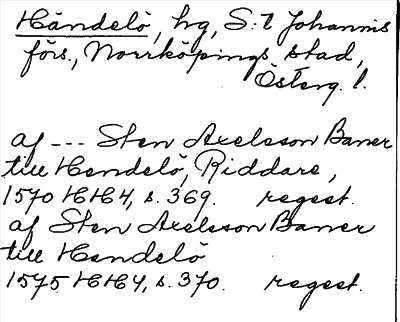 Händelö, hg, S:t Johannis
förs., Norrköpings stad,
Österg. l.
af --- Sten Axelsson Baner
till Hendelö, Riddare,
1570 HH4, s. 369. regest.
af Sten Axelsson Baner
till Hendelö
1575 HH4, s. 370. regest.